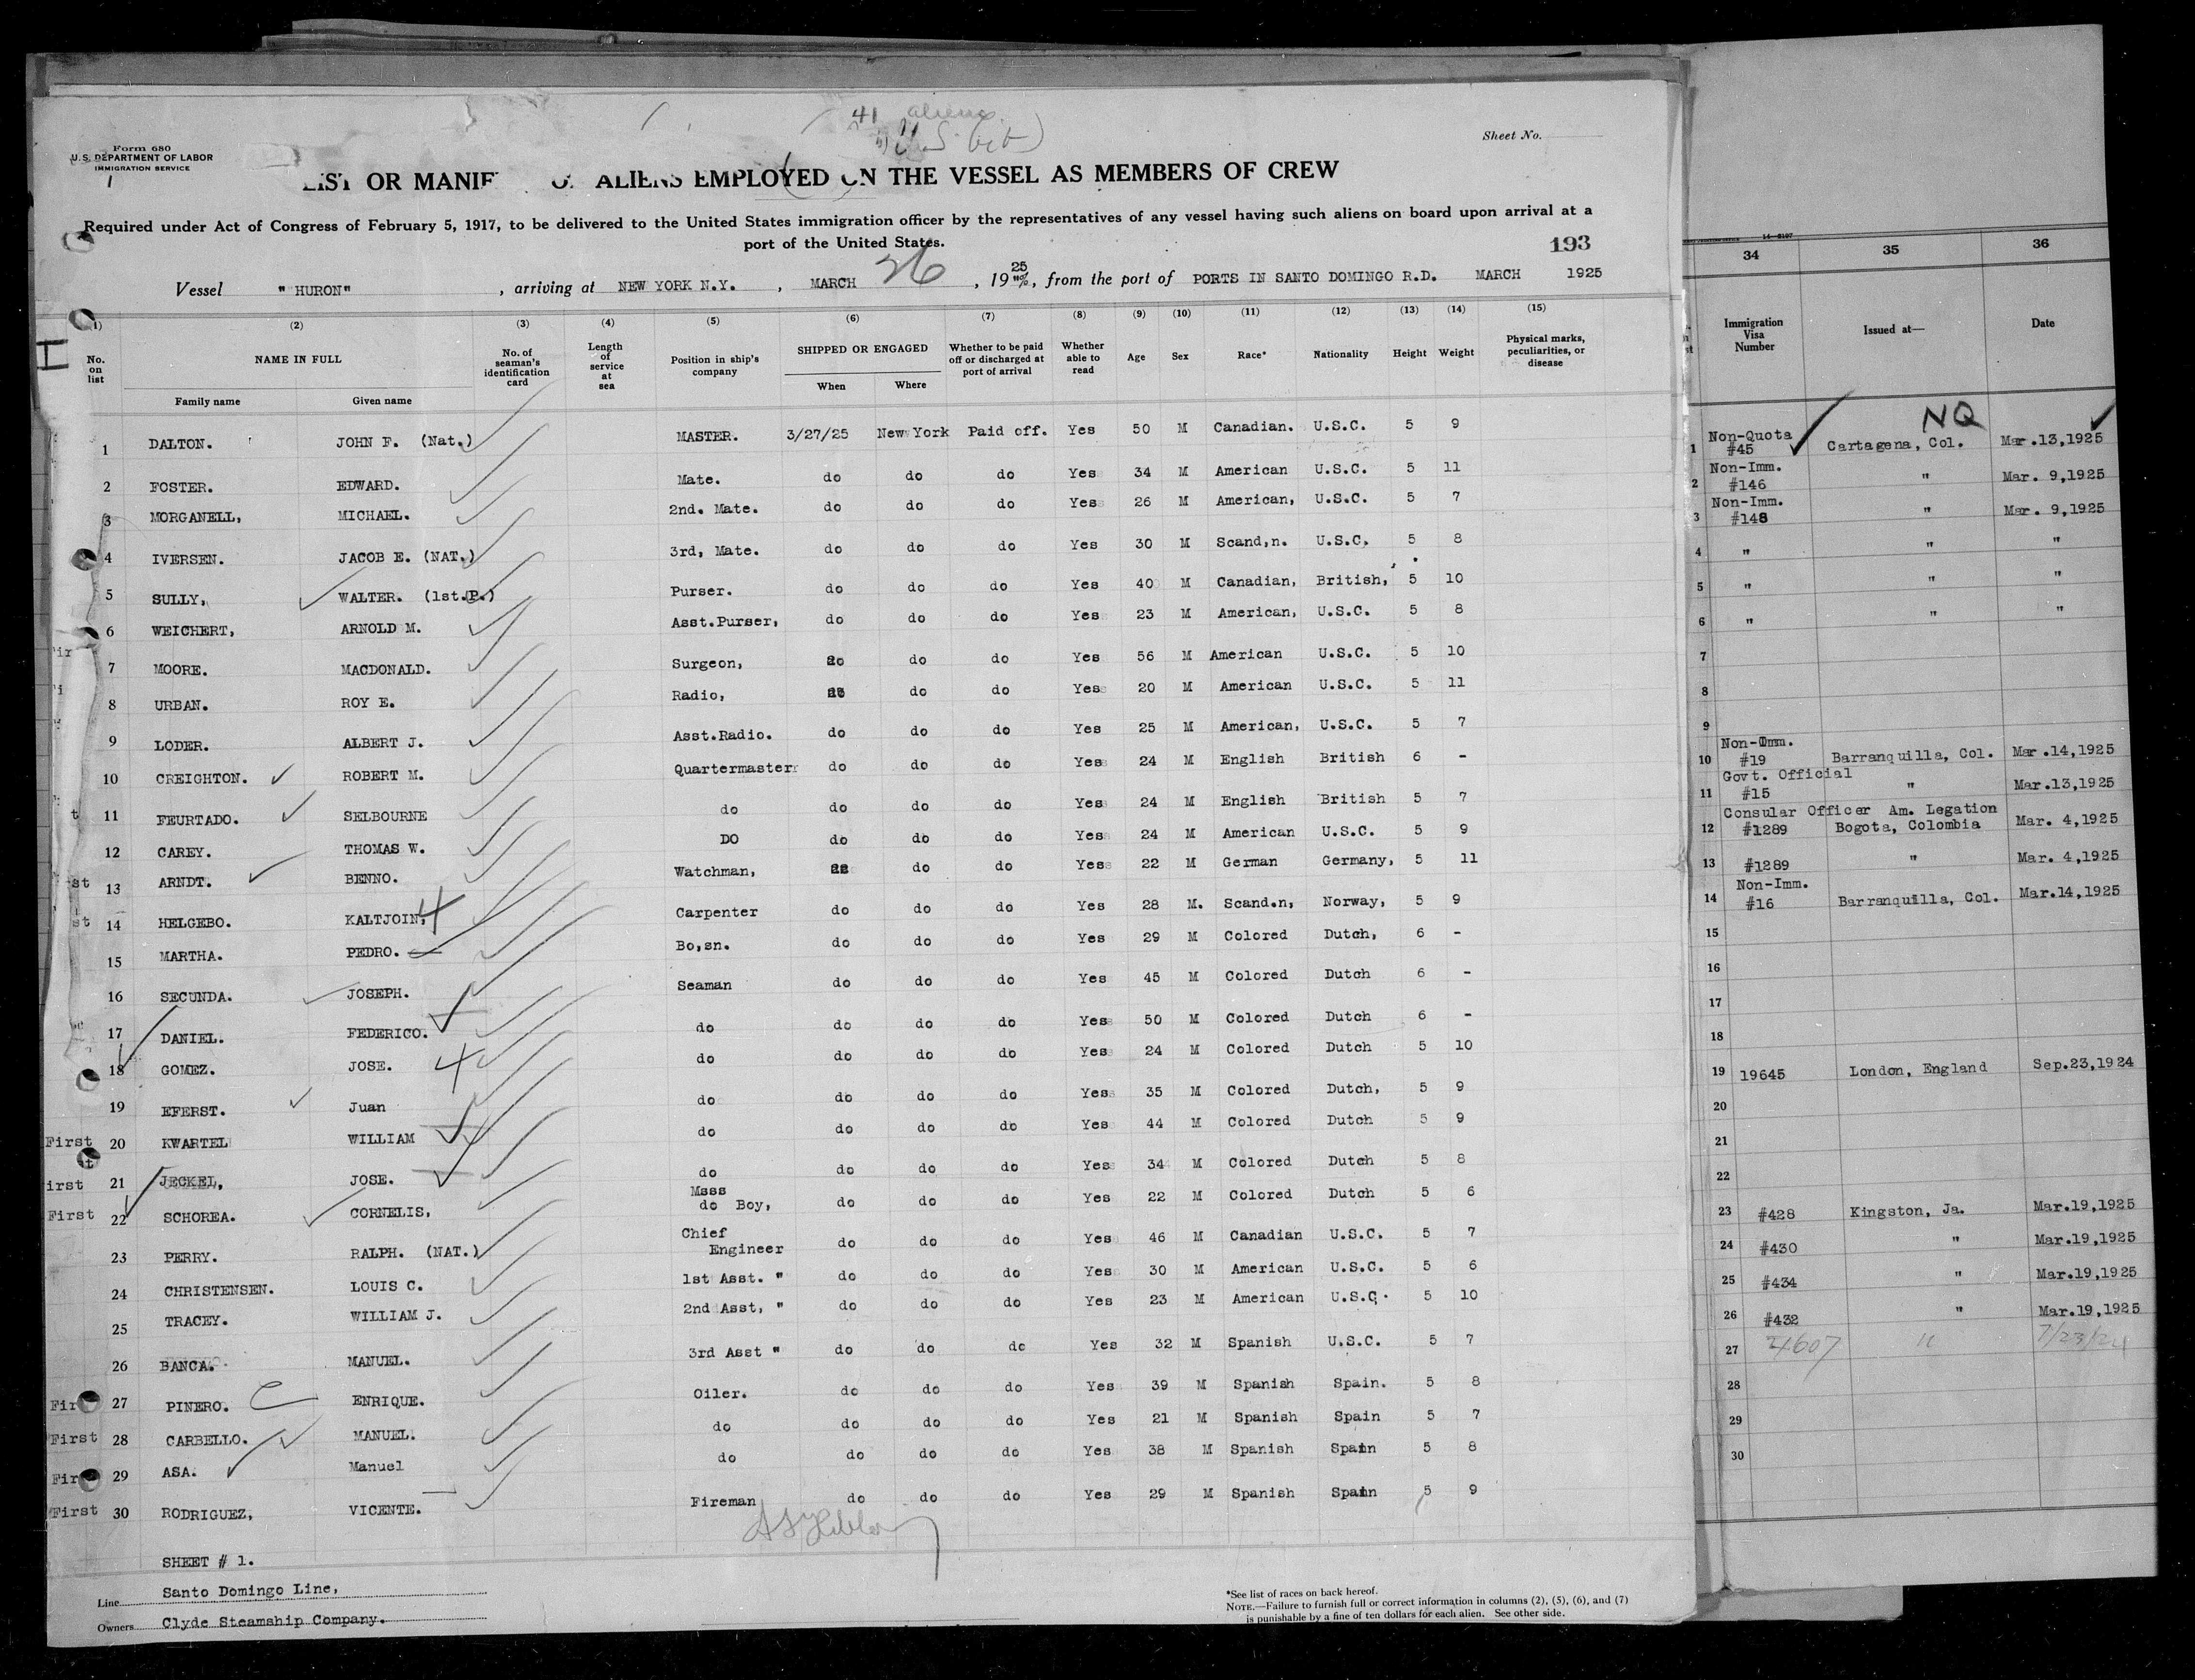 41 aliens
Sheet No.
Form 680
U.S. DEPARTMENT OF LABOR
IMMIGRATION SERVICE
LIST OR MANIF O. ALIENS EMPLOYED ON THE VESSEL AS MEMBERS OF CREW
Required under Act of Congress of February 5, 1917, to be delivered to the United States immigration officer by the representatives of any vessel having such aliens on board upon arrival at a
port of the United States.
193
Vessel "HURON", arriving at NEW YORK N.Y., MARCH 26, 19 25, from the port of PORTS IN SANTO DOMINGO R.D. MARCH 1925
(1) (2) (3) (4) (5) (6) (7) (8) (9) (10) (11) (12) (13) (14) (15)
No. on list NAME IN FULL No. of seaman's identification card Length of service at sea Position in ship's company SHIPPED OR ENGAGED Whether to be paid off or discharged at port of arrival Whether able to read Age Sex Race* Nationality Height Weight Physical marks, peculiarities, or disease
Family name Given name When Where
1 DALTON. JOHN F. (Nat.) MASTER. 3/27/25 New York Paid off. Yes 50 M Canadian. U.S.C. 5 9
2 FOSTER. EDWARD. Mate. do do do Yes 34 M American U.S.C. 5 11
3 MORGANELL, MICHAEL. 2nd. Mate. do do do Yes 26 M American, U.S.C. 5 7
4 IVERSEN. JACOB E. (NAT.) 3rd, Mate. do do do Yes 30 M Scand,n. U.S.C. 5 8
5 SULLY, WALTER. (1st.P.) Purser. do do do Yes 40 M Canadian, British, 5 10
6 WEICHERT, ARNOLD M. Asst.Purser, do do do Yes 23 M American, U.S.C. 5 8
7 MOORE. MACDONALD. Surgeon, do do do Yes 56 M American U.S.C. 5 10
8 URBAN. ROY E. Radio, do do Yes 20 M American U.S.C. 5 11
9 LODER. ALBERT J. Asst.Radio. do do do Yes 25 M American, U.S.C. 5 7
10 CREIGHTON. ROBERT M. Quartermaster do do do Yes 24 M English British 6 -
11 FEURTADO. SELBOURNE do do do do Yes 24 M English British 5 7
12 CAREY. THOMAS W. DO do do do Yes 24 M American U.S.C. 5 9
13 ARNDT. BENNO. Watchman, do do Yes 22 M German Germany, 5 11
14 HELGEBO. KALTJOIN, Carpenter do do do Yes 28 M. Scand.n, Norway, 5 9
15 MARTHA. PEDRO. Bo,sn. do do do Yes 29 M Colored Dutch, 6 -
16 SECUNDA. JOSEPH. Seaman do do do Yes 45 M Colored Dutch 6 -
17 DANIEL. FEDERICO. do do do do Yes 50 M Colored Dutch 6 -
18 GOMEZ. JOSE. do do do do Yes 24 M Colored Dutch 5 10
19 EFERST. Juan do do do do Yes 35 M Colored Dutch, 5 9
First 20 KWARTEL WILLIAM do do do do Yes 44 M Colored Dutch 5 9
irst 21 JECKEL, JOSE. do do do do Yes 34 M Colored Dutch 5 8
First 22 SCHOREA. CORNELIS, Mess do Boy, do do do Yes 22 M Colored Dutch 5 6
23 PERRY. RALPH. (NAT.) Chief Engineer do do do Yes 46 M Canadian U.S.C. 5 7
24 CHRISTENSEN. LOUIS C. 1st Asst. " do do do Yes 30 M American U.S.C. 5 6
25 TRACEY. WILLIAM J. 2nd Asst, " do do do Yes 23 M American U.S.C. 5 10
26 BANCA. MANUEL. 3rd Asst " do do do Yes 32 M Spanish U.S.C. 5 7
Fir 27 PINERO. ENRIQUE. Oiler. do do do Yes 39 M Spanish Spain. 5 8
First 28 CARBELLO. MANUEL. do do do do Yes 21 M Spanish Spain 5 7
Fir 29 ASA. Manuel do do do do Yes 38 M Spanish Spain 5 8
First 30 RODRIGUEZ, VICENTE. Fireman do do do Yes 29 M Spanish Spain 5 9
SHEET # 1.
Line Santo Domingo Line,
Owners Clyde Steamship Company.
*See list of races on back hereof.
NOTE.—Failure to furnish full or correct information in columns (2), (5), (6), and (7)
is punishable by a fine of ten dollars for each alien. See other side.
34 35 36
Immigration Visa Number Issued at— Date
NQ
1 Non-Quota #45 Cartagena, Col. Mar.13,1925
2 Non-Imm. #146 " Mar. 9,1925
3 Non-Imm. #148 " Mar. 9,1925
4 " " "
5 " " "
6 " " "
7
8
9
10 Non-Imm. #19 Barranquilla, Col. Mar.14,1925
11 Govt. Official #15 " Mar.13,1925
12 Consular Officer Am. Legation #1289 Bogota, Colombia Mar. 4,1925
13 #1289 " Mar. 4,1925
14 Non-Imm. #16 Barranquilla, Col. Mar.14,1925
15
16
17
18
19 19645 London, England Sep.23,1924
20
21
22
23 #428 Kingston, Ja. Mar.19,1925
24 #430 " Mar.19,1925
25 #434 " Mar.19,1925
26 #432 " Mar.19,1925
27 4607 " 7/23/24
28
29
30